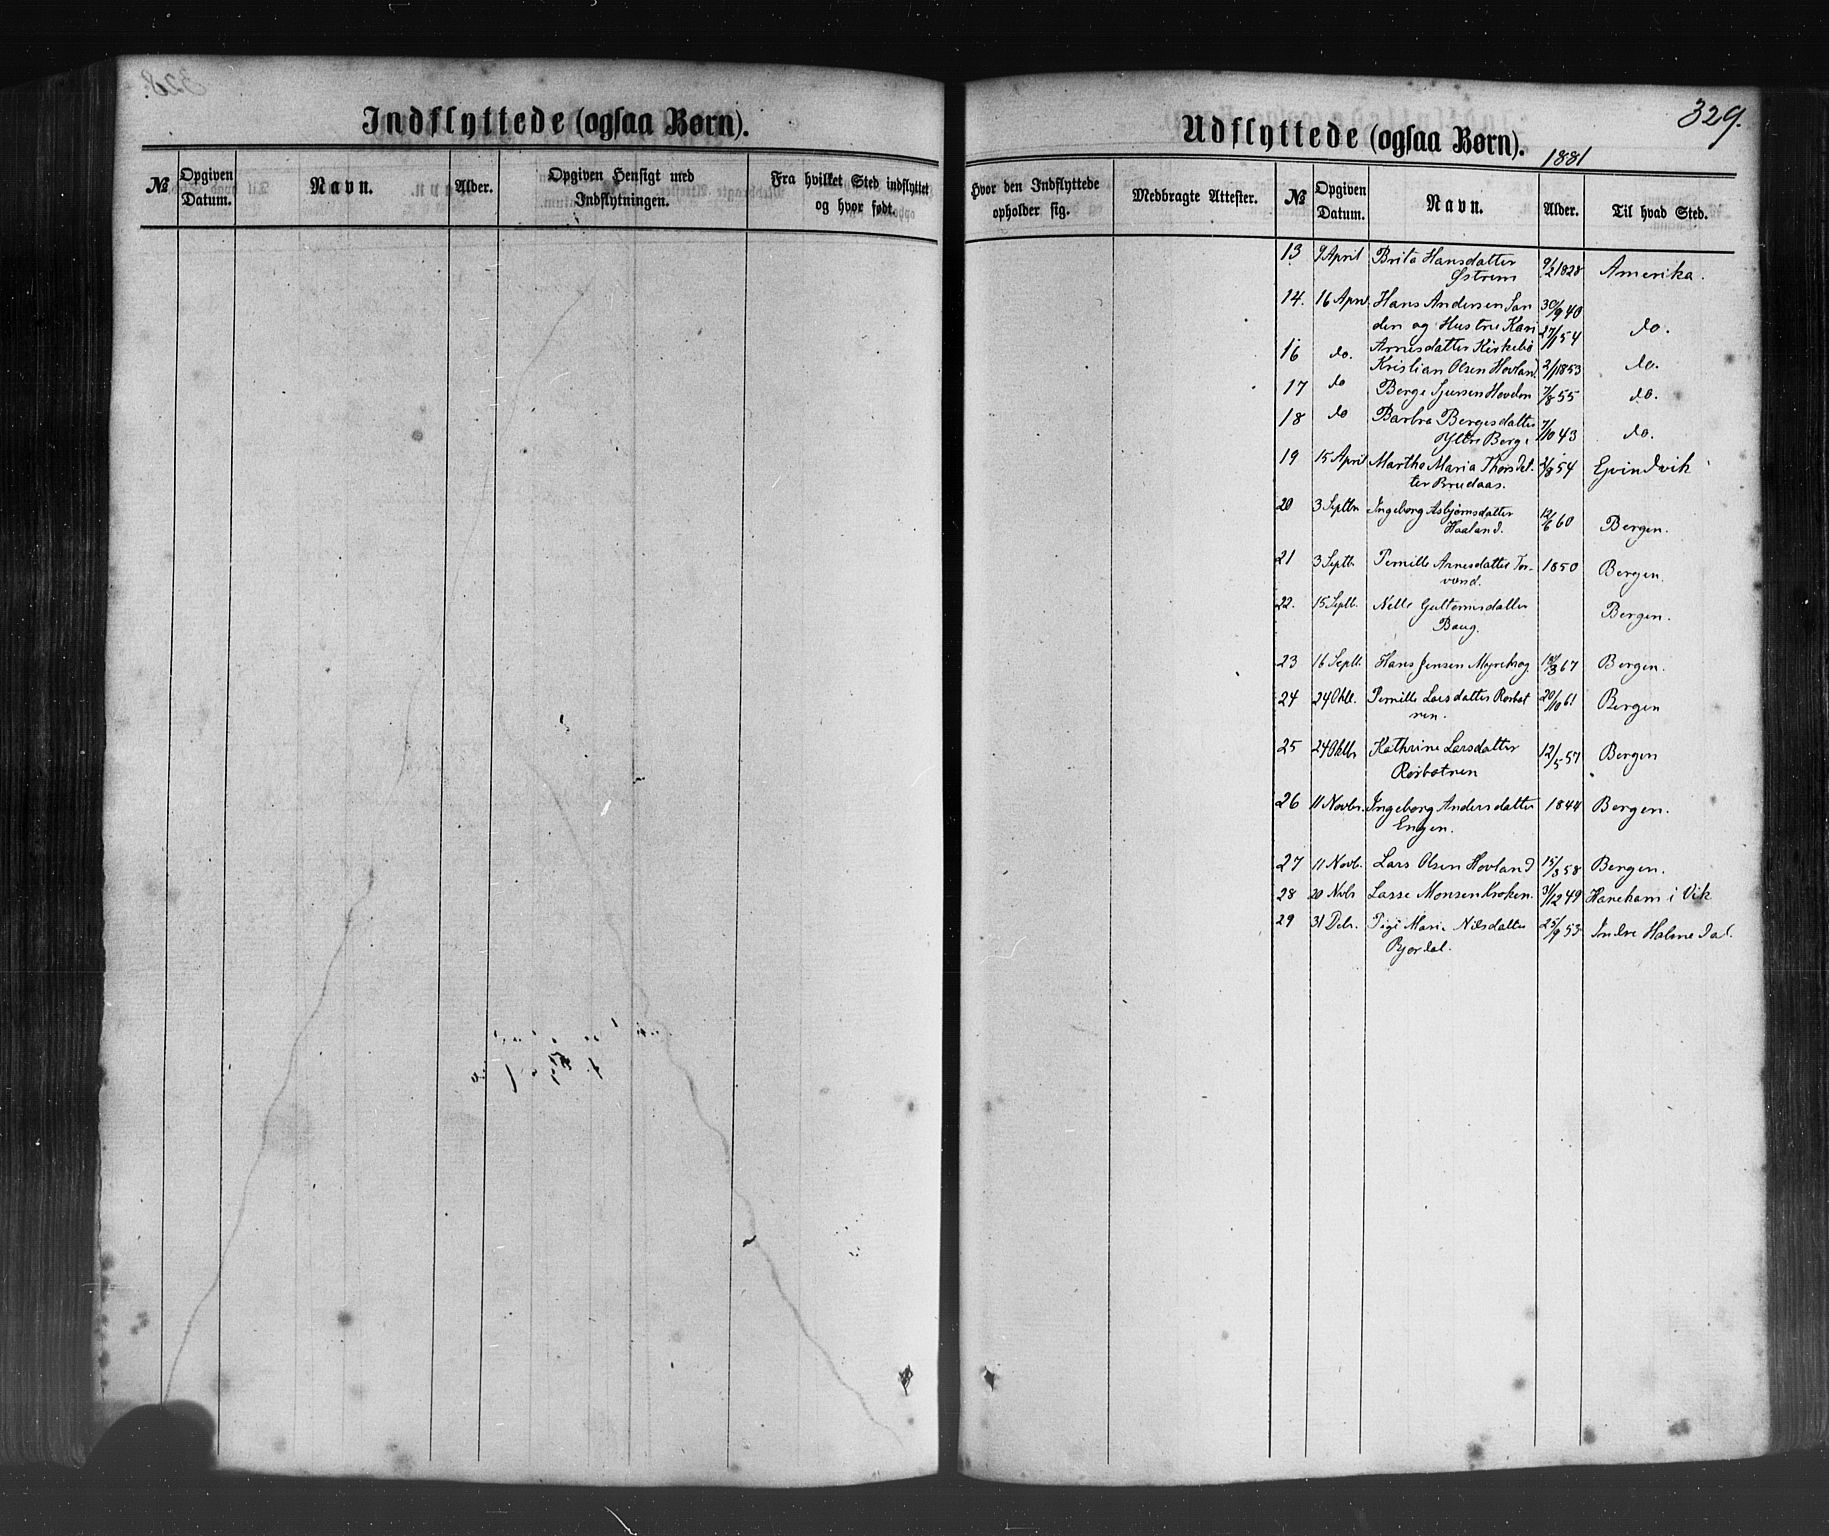 Indflyttede (ogsaa Børn).
№
Opgiven Datum.
Navn.
Alder.
Opgiven Hensigt med Indflytningen.
Fra hvilket Sted indflyttet og hvor født.
329.
Udflyttede (ogsaa Børn).
1881
Hvor den Indflyttede opholder sig.
Medbragte Attester.
№
Opgiven Datum.
Navn.
Alder.
Til hvad Sted.
13 9 April Brita Hansdatter 9/2 1828 Amerika.
Østrem
14. 16 April Hans Andersen San 30/9 40
den og Hustru Kari 27/11 54 do.
Arnesdatter Kirkebø
16 do. Kristian Olsen Hovland 2/1 1853 do.
17 do Berge Sjursen Hovden 7/8 55 do.
18 do Barbro Bergesdatter 7/10 43 do.
Yttre Berge
19 15 April Martha Maria Thorsdat 2/8 54 Evindvik
ter Brudaas.
20 3 Septbr Ingeborg Asbjørnsdatter 12/6 60 Bergen.
Haaland.
21 3 Septb. Pernille Arnesdatter Tor 1850 Bergen.
vund.
22. 15 Septb. Nelle Guttormsdatter Bergen.
Boug.
23 16 Septb. Hans Jensen Myrekrog 67 Bergen.
24 24 Oktb. Pernille Larsdatter Rørbot 20/10 61 Bergen
nen.
25 24 Oktbr Kathrine Larsdatter 12/5 57 Bergen
Rørbotnen
26 11 Novbr. Ingeborg Andersdatter 1844 Bergen.
Engen.
27 11 Novb. Lars Olsen Hovland 15/3 58 Bergen.
28 20 Nvbr Lasse Monsen Kroken. 31/12 49 i Vik
29 31 Debr. Pige Marie Nilsdatter 25/9 53 Indre Holmedal.
Bjordal.